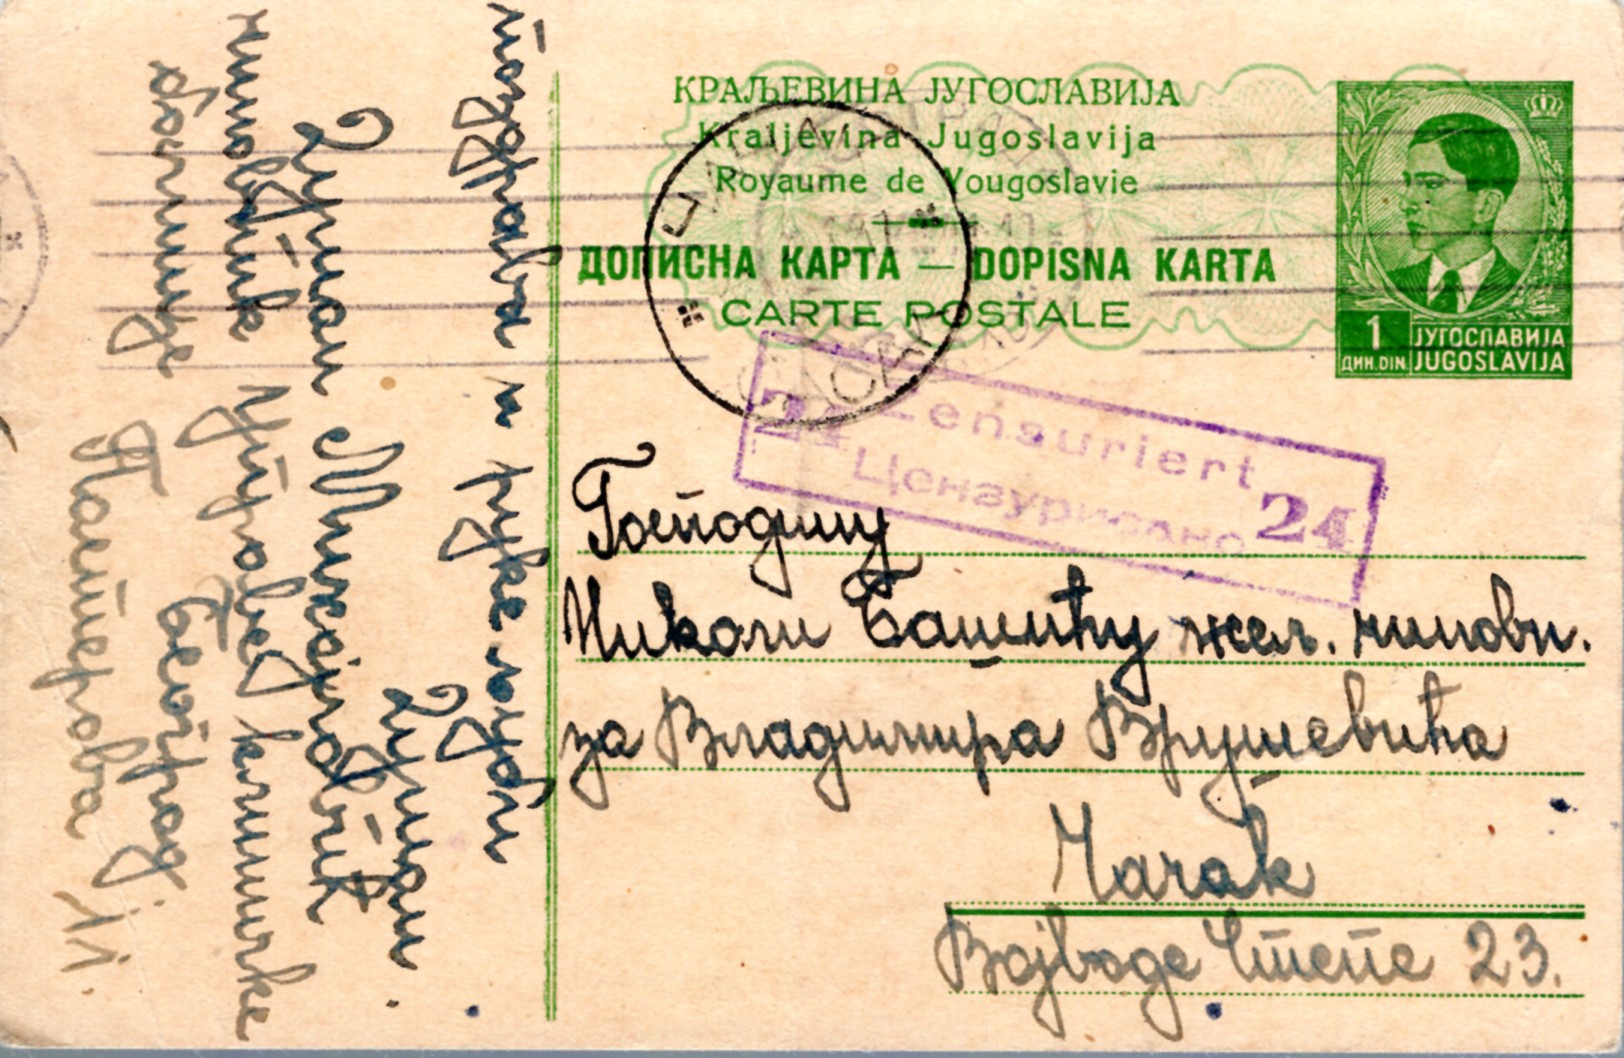 КРАЉЕВИНА ЈУГОСЛАВИЈА
Kraljevina Jugoslavija
Royaume de Yougoslavie
ДОПИСНА КАРТА — DOPISNA KARTA
CARTE POSTALE
1
ДИН. DIN.
ЈУГОСЛАВИЈА
JUGOSLAVIJA
ЧАЧАК
ČAČAK
24 Zensuriert
Цензурисано 24
Господину
Николи Башићу жел. чинови.
за Владимира Врушевића
Чачак
Војводе Степе 23.
поздрава и руке љуби
Душан
Душан
чиновник Управе клиничке
болнице Београд
Пастерова 11.